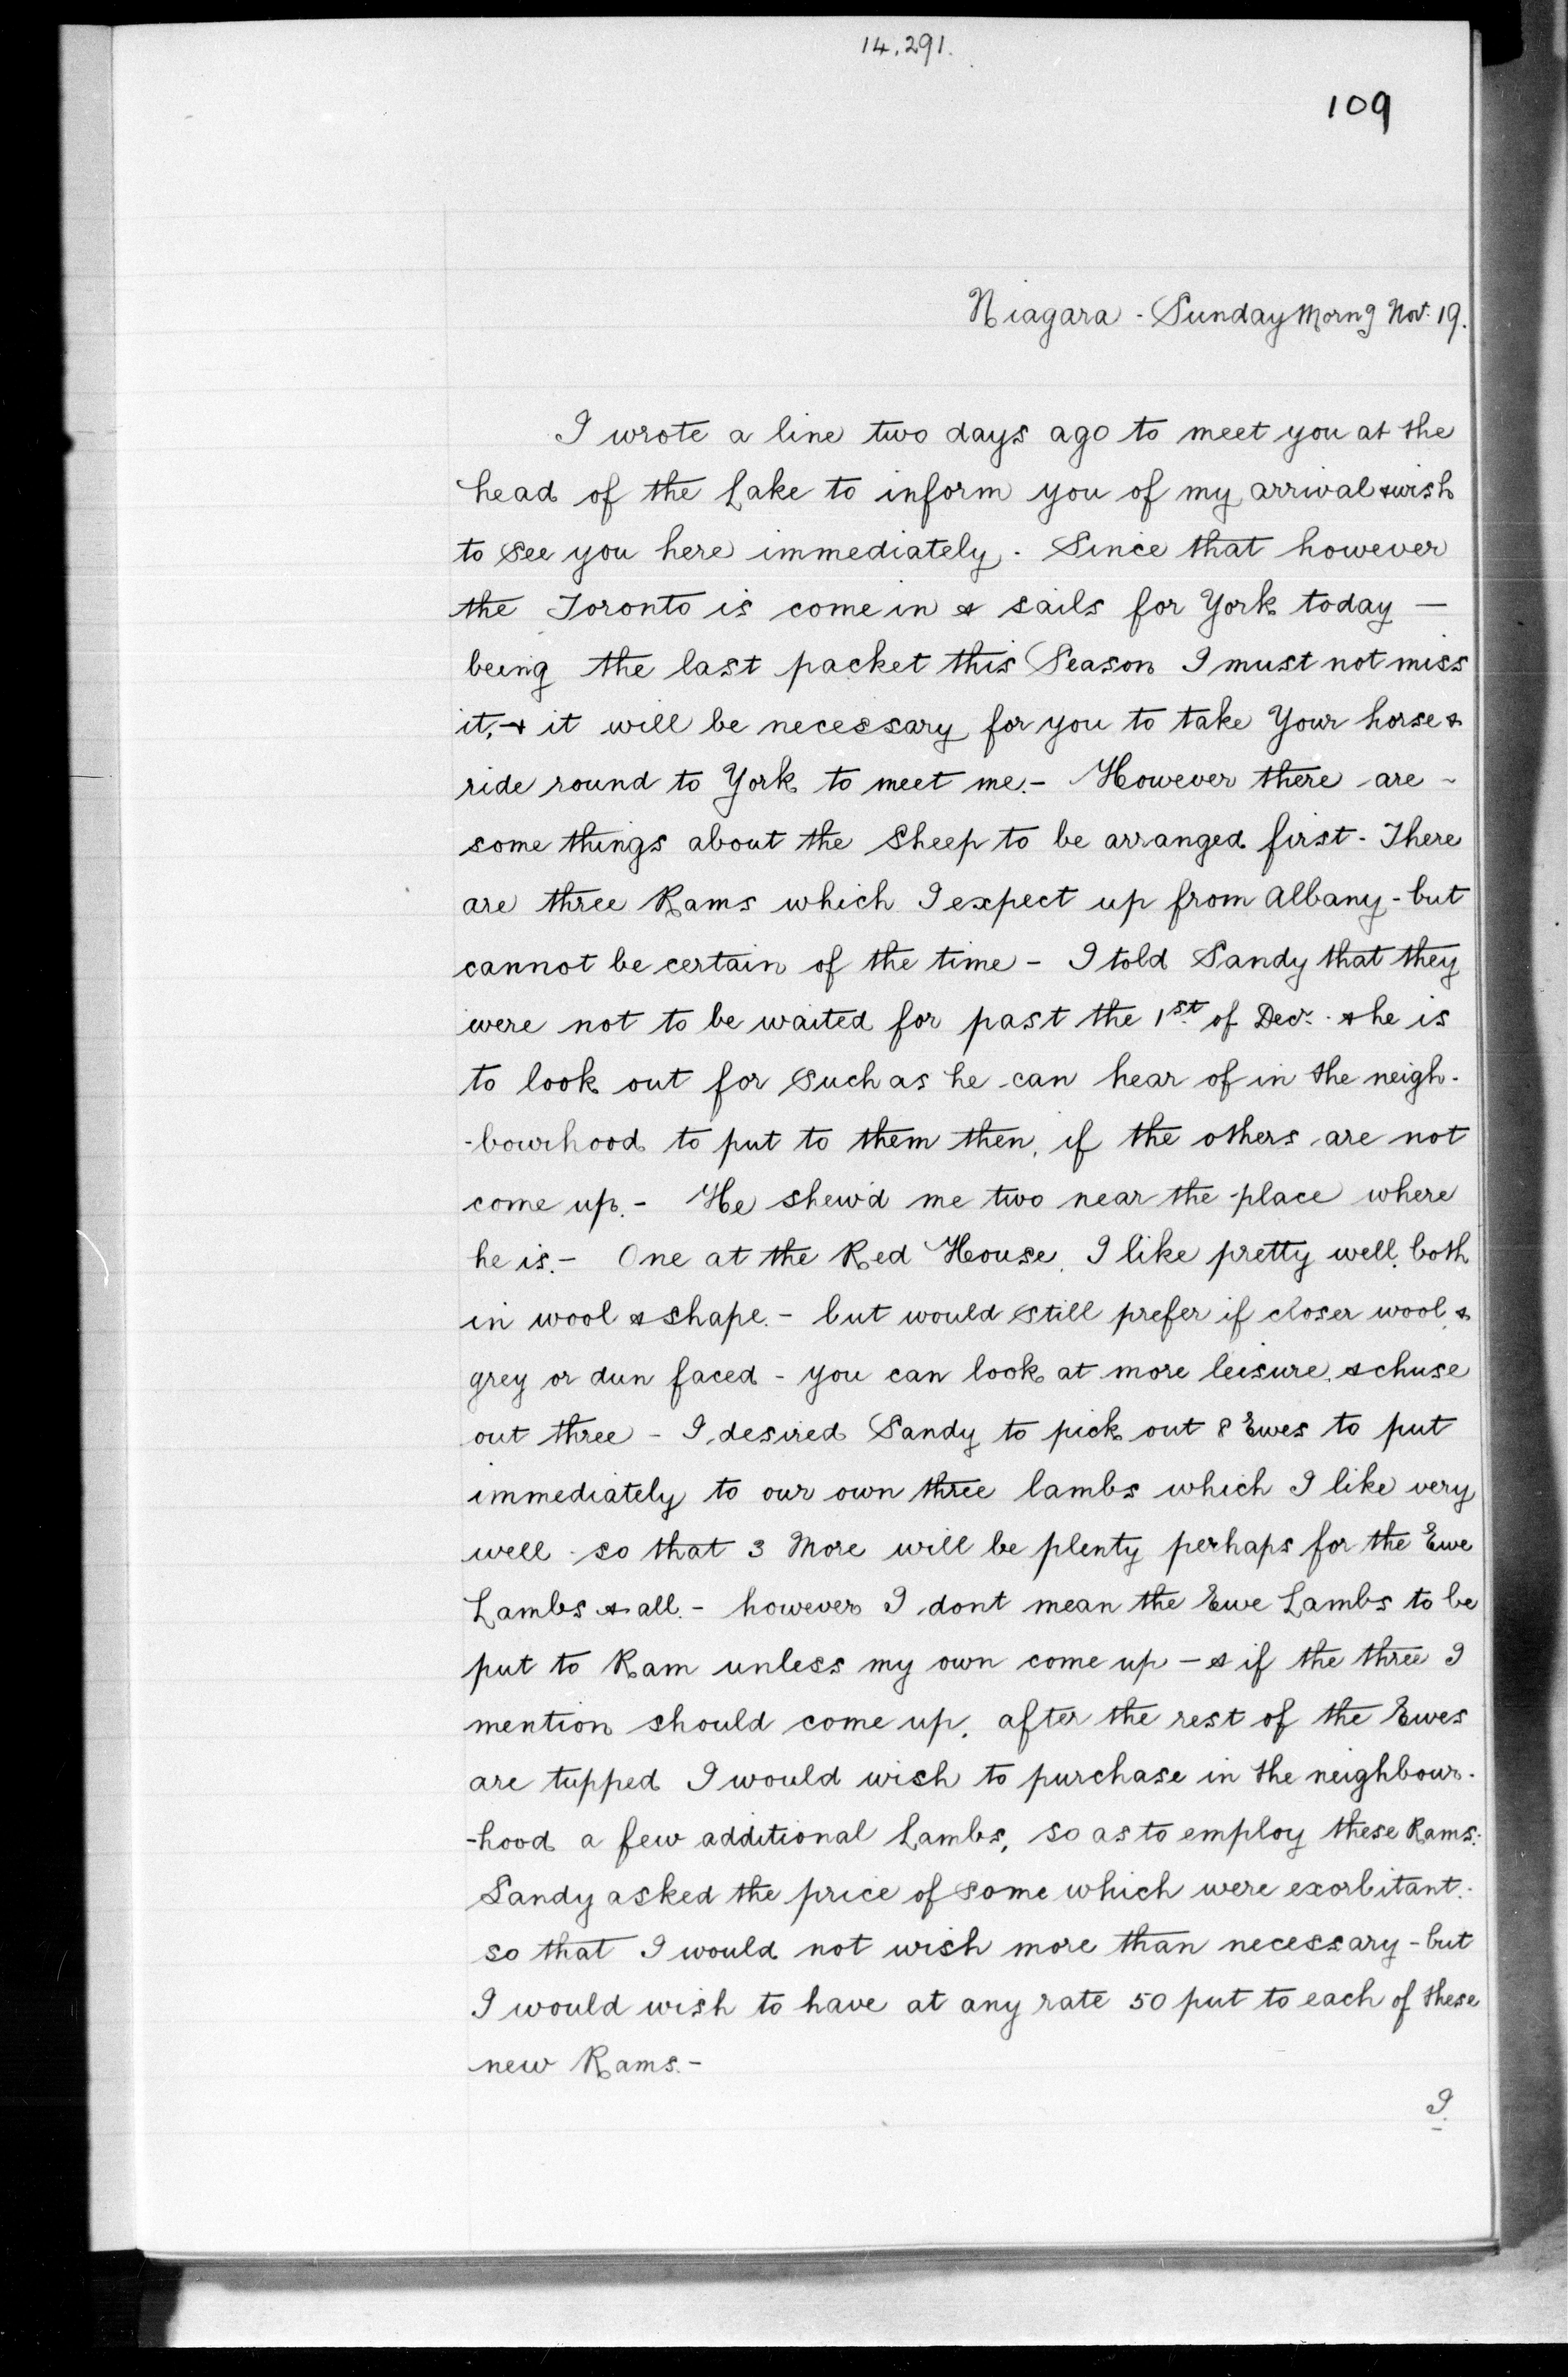 14,291.
109
Niagara - Sunday Morng Nov. 19.
I wrote a line two days ago to meet you at the
head of the Lake to inform you of my arrival & wish
to see you here immediately. Since that however
the Toronto is come in & sails for York today —
being the last packet this Season I must not miss
it, & it will be necessary for you to take Your horse &
ride round to York to meet me. - However there are -
some things about the Sheep to be arranged first - There
are three Rams which I expect up from Albany - but
cannot be certain of the time - I told Sandy that they
were not to be waited for past the 1st of Decr. & he is
to look out for such as he can hear of in the neigh-
-bourhood to put to them then, if the others are not
come up. - He shew'd me two near the place where
he is. - One at the Red House, I like pretty well, both
in wool & shape. - but would still prefer if closer wool, &
grey or dun faced - you can look at more leisure, & chuse
out three - I desired Sandy to pick out 8 Ewes to put
immediately to our own three lambs which I like very
well - so that 3 More will be plenty perhaps for the Ewe
Lambs & all. - however I dont mean the Ewe Lambs to be
put to Ram unless my own come up - & if the three I
mention should come up, after the rest of the Ewes
are tupped I would wish to purchase in the neighbour-
-hood a few additional Lambs, so as to employ these Rams:
Sandy asked the price of some which were exorbitant.
so that I would not wish more than necessary - but
I would wish to have at any rate 50 put to each of these
new Rams. -
I.